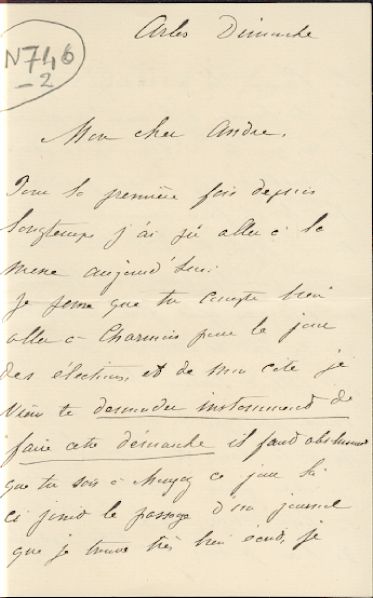 N746
-2
Arles Dimanche
Mon cher André.
Pour la première fois depuis
longtemps j'ai pu aller à la
messe aujourd'hui.
Je pense que tu compte bien
aller à Charmois pour le jour
des élections, et de mon côté je
viens te demander instamment de
faire cette démarche il faut absolument
que tu sois à ce jour là
ci joint le passage d'un journal
que je trouve très bien écrit, je